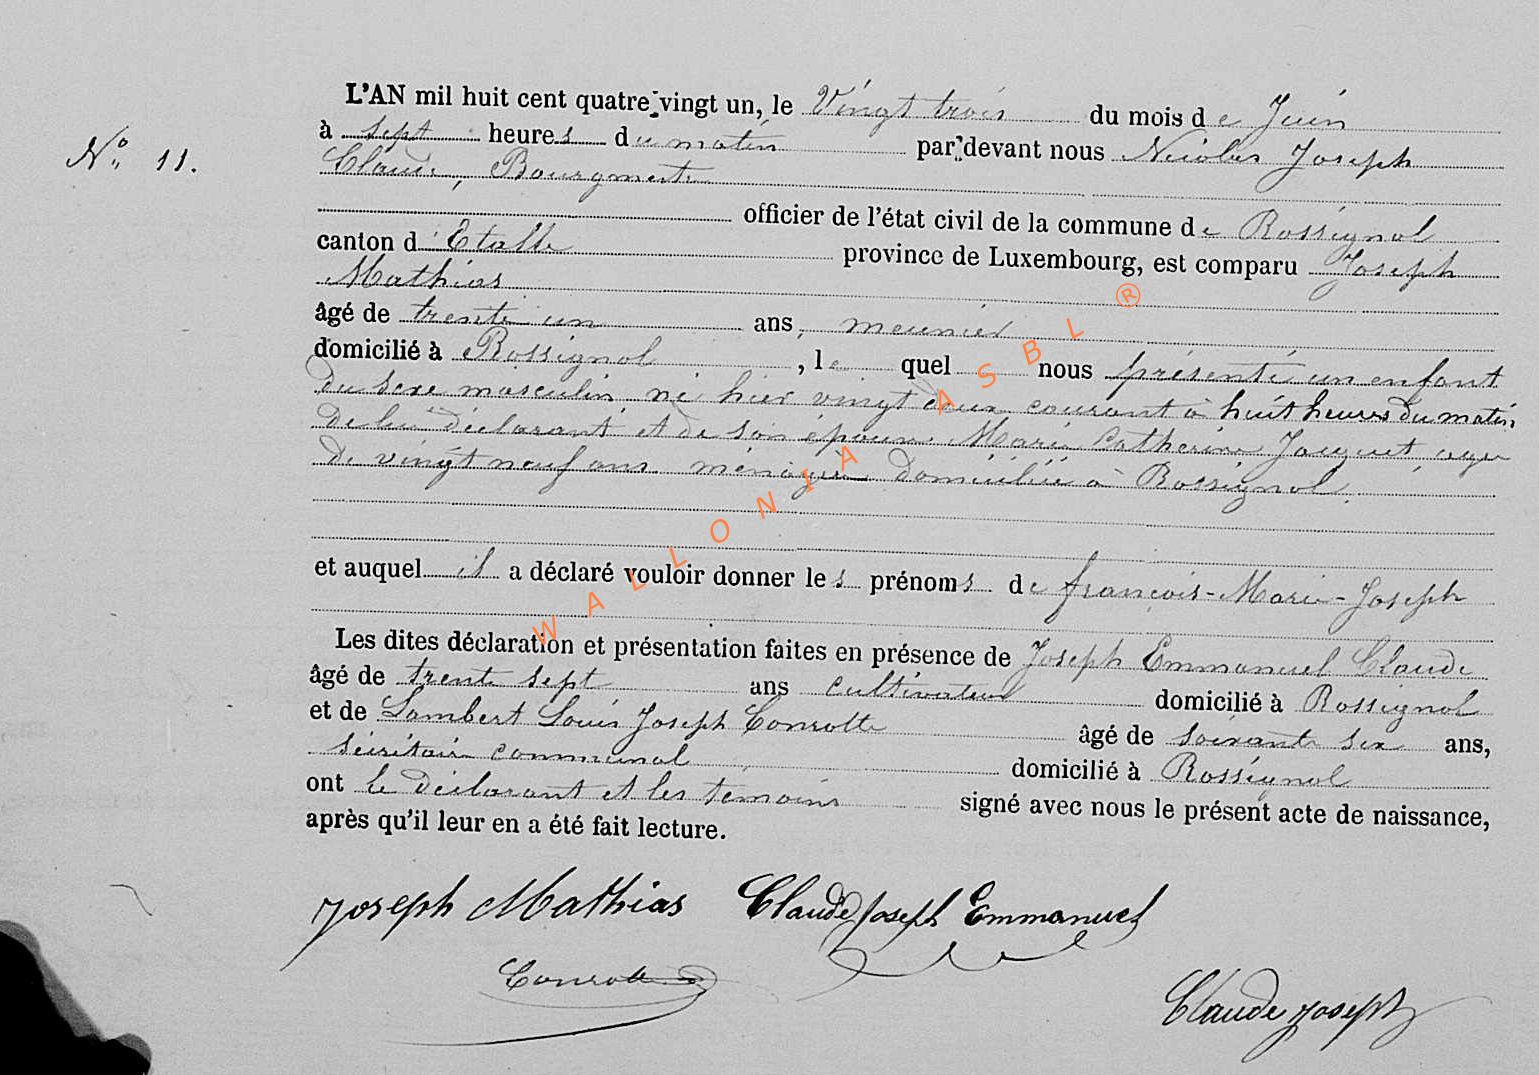 L'AN mil huit cent quatre-vingt un, le Vingt trois du mois de Juin
N° 11.
à sept heures du matin par-devant nous Nicolas Joseph
Claude, Bourgmestre
officier de l'état civil de la commune de Rossignol
canton d'Etalle province de Luxembourg, est comparu Joseph
Mathias
âgé de trente un ans, meunier
domicilié à Rossignol, lequel nous présenté un enfant
du sexe masculin né hier vingt deux courant à huit heures du matin
de lui déclarant et de son épouse Marie Catherine Jacquet, agée
de vingt neuf ans ménagère domiciliée à Rossignol.
et auquel il a déclaré vouloir donner les prénoms de françois-Marie-Joseph
Les dites déclaration et présentation faites en présence de Joseph Emmanuel Claude
âgé de trente sept ans cultivateur domicilié à Rossignol
et de Lambert Louis Joseph Conrotte âgé de soixante six ans,
secrétaire communal domicilié à Rossignol
ont le déclarant et les témoins signé avec nous le présent acte de naissance,
après qu'il leur en a été fait lecture.
Joseph Mathias Claude Joseph Emmanuel
Conrotte
Claude Joseph
WALLONIA ASBL ®